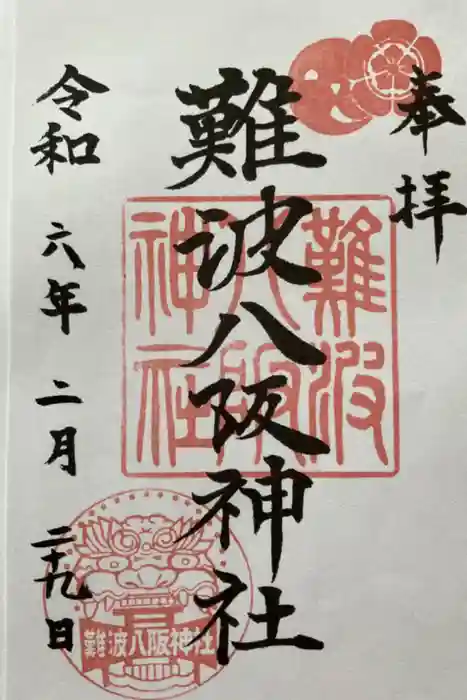 奉拝
難波八阪神社
令和六年二月二十九日
難波
八阪
神社
難波八阪神社